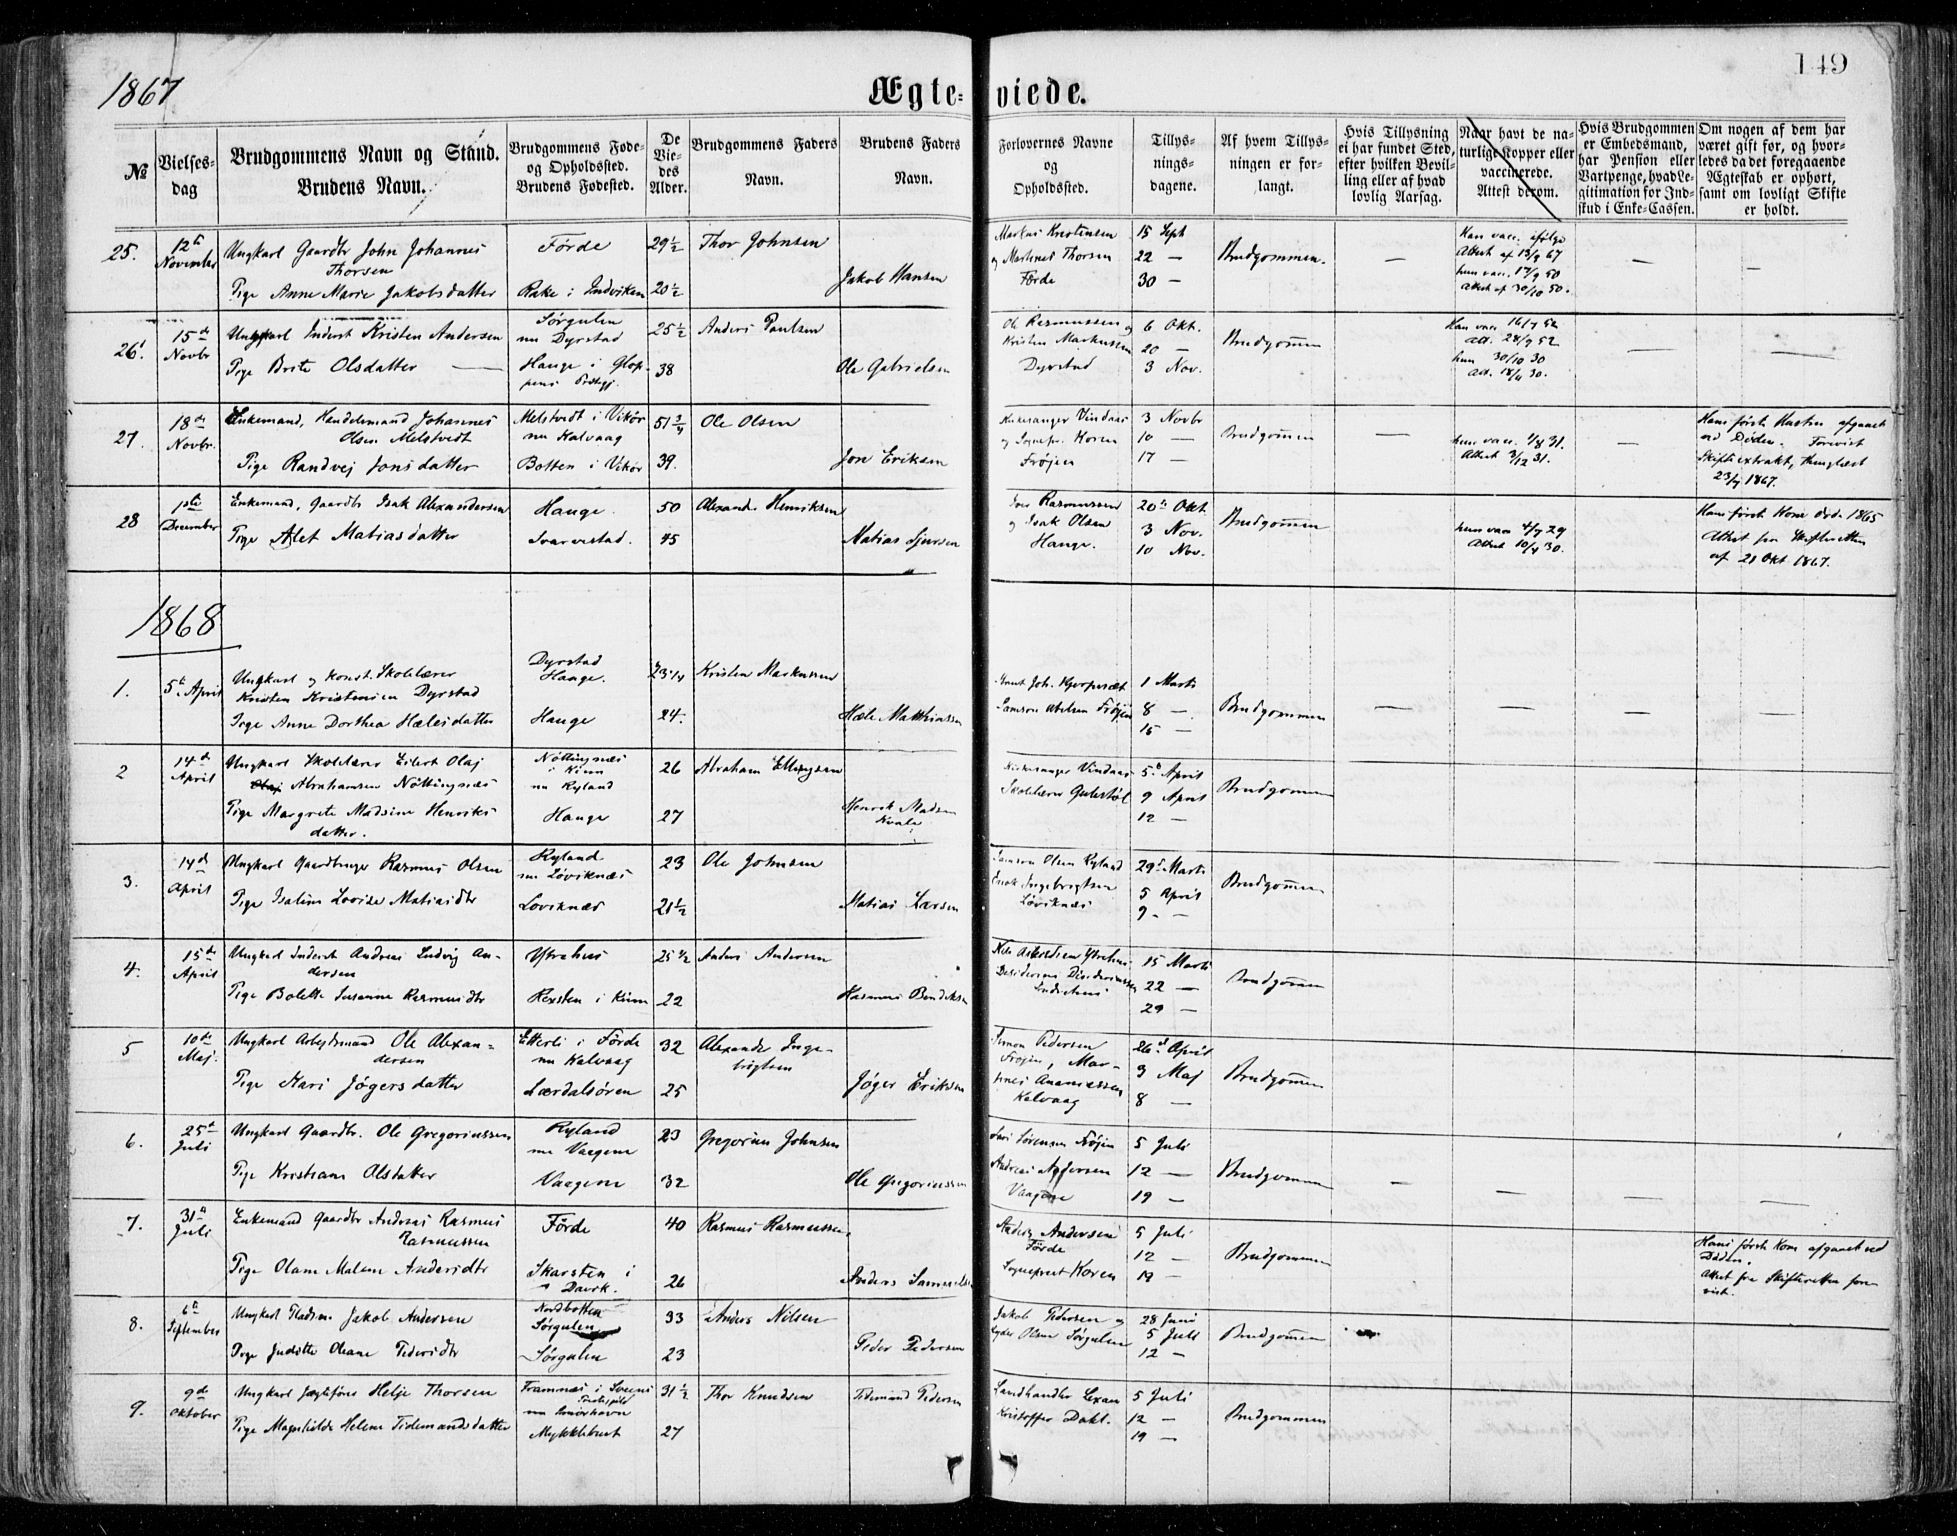 149
1867
Ægte-
viede.
№
Vielses-
dag
Brudgommens Navn og Stand.
Brudens Navn.
Brudgommens Føde-
og Opholdssted.
Brudens Fødested.
De
Vie-
des
Alder.
Brudgommens Faders
Navn.
Brudens Faders
Navn.
Forlovernes Navne
og
Opholdssted.
Tillys-
nings-
dagene.
Af hvem Tillys-
ningen er for-
langt.
Hvis Tillysning
ei har fundet Sted,
efter hvilken Bevil-
ling eller af hvad
lovlig Aarsag.
Naar havt de na-
turlige Kopper eller
vaccinerede.
Attest derom.
Hvis Brudgommen
er Embedsmand,
har Pension eller
Vartpenge, hvad Le-
gitimation for Ind-
skud i Enke-Cassen.
Om nogen af dem har
været gift før, og hvor-
ledes da det foregaaende
Ægteskab er ophørt,
samt om lovligt Skifte
er holdt.
25.
12te
November
Ungkarl Gaardbr John Johannes
Thorsen
Pige Anne Marie Jakobsdatter
Förde
Rake i Indviken
29 1/2
20 1/2
Thor Johnsen
Jakob Hansen
Markus Kristensen
og Martines Thorsen
Förde
15 Sept
22 —
30 —
Brudgommen.
—
Han vacc. ifølge
Attest af 13/9 67
hun vacc. 17/9 50
Attest af 30/10 50.
—
—
26.
15de
Novbr
Ungkarl Inderst Kristen Andersen
Pige Brite Olsdatter —
Sørgulen
nu Dyrstad
Hauge i Glop-
pens Præstgj.
25 1/2
38
Anders Paulsen
Ole Gabrielsen
Ole Rasmussen og
Kristen Markussen
Dyrstad
6 Okt.
20 —
3 Nov.
Brudgommen
—
Han vacc. 16/7 52
Att. 24/9 52
hun 30/10 30
Att. 18/11 30.
—
—
27.
18de
Novbr.
Enkemand, Handelsmand Johannes
Olsen Melstvedt
Pige Randvej Jonsdatter
Melstvedt i Vikör
nu Kalvaag
Botten i Vikör
51 3/4
39.
Ole Olsen
Jon Eriksen
Kirkesanger Vindaas
og Sognepr. Koren
Frøjen
3 Novbr
10 —
17 —
Brudgommen
—
hun vacc. 1/8 31.
Attest 3/12 31.
—
Hans første Hustru afgaaet
ved Døden. Forevist
Skifteextrakt, thinglæst
23/9 1867.
28
1ste
December
Enkemand, Gaardbr Isak Alexandersen
Pige Alet Matiasdatter
Hauge.
Svarvestad.
50
45
Alexander Henriksen
Matias Sjursen
Iver Rasmussen
og Isak Olsen
Hauge.
20de Okt.
3 Nov.
10 Nov.
Brudgommen
hun vacc 4/9 29
Attest 10/4 30.
Hans første Kone døde 1865
Attest fra Skifteretten
af 21 Okt 1867.
1868
1.
5te April
Ungkarl og konst. Skolelærer
Kristen Kristensen Dyrstad
Pige Anne Dorthea Hælesdatter
Dyrstad
Hauge.
Hauge
23 1/4
24.
Kristen Markussen
Hæle Matthiassen
Samson Abelsen Frøjen
1 Marts
8 —
15 —
Brudgommen
—
—
—
—
2
14de
April
Ungkarl Skolelærer Eilert Olaj
Abrahamsen Nöttingnæs
Pige Margrete Madsine Henriks
datter.
Nöttingnæs
i Kinn
nu Ryland
Hauge
26
27
Abraham Ellingsen
Henrik Madsen
Kvale
Kirkesanger Vindaas
Skolelærer Gulestöl
5te April
9 April
12 —
Brudgommen
3.
14de
April
Ungkarl Gaardbruger Rasmus Olsen
Pige Isaline Lovise Matiasdtr
Ryland
nu Löviknæs
Loviknæs
23
21 1/2
Ole Johnsen
Matias Larsen
Samson Olsen Ryland
Enok Ingebrigtsen
Löviknæs
29de Marts
5 April
9 — —
Brudgommen
4.
15de
April
Ungkarl Inderst Andreas Ludvig An-
dersen
Pige Bolette Susanne Rasmusdtr
Ytrehus
Rexsten i Kinn
25 1/2
22
Anders Andersen
Rasmus Bendiksen
15 Marts
22 —
29 —
Brudgommen
5
10de
Maj.
Ungkarl Arbejdsmand Ole Alexan-
dersen
Pige Kari Jögersdatter
Etterli i Förde
nu Kalvaag
Lærdalsören
32
25
Alexander Inge-
brigtsen
Jöger Eriksen
Simon Pedersen
Frøjen, Mar-
tines Ananiassen
Kalvaag
26de April
3 Maj
8 —
Brudgommen
6.
25de
Juli
Ungkarl Gaardbr. Ole Gregoriussen
Pige Kristiane Olsdatter
Ryland
nu Vaagene
Vaagene
23
32
Gregorius Johnsen
Ole Gregoriussen
Lars Sørensen Frøjen
Andreas Andersen
Vaagene
5 Juli
12 —
19 —
Brudgommen
—
—
—
—
7.
31te
Juli
Enkemand Gaardbr Andreas Rasmus
Rasmussen
Pige Olane Malene Andersdtr
Förde
Skarsten i
Davik.
40
26
Rasmus Rasmussen
Anders Samuels
Anders Andersen
Förde
Sogneprest Koren
5 Juli
12 —
19 —
Brudgommen
Hans første Kone afgaaet ved
Døden.
Attest fra Skifteretten fore-
vist.
8.
6te
September
Ungkarl Pladsm. Jakob Andersen
Pige Juditte Oleane Pedersdtr
Nordbotten
Sørgulen
Sörgulen
33
23
Anders Nilsen
Peder Pedersen
Jakob Pedersen og
Peder Olsen Sørgulen
28 Juni
5 Juli
12 —
Brudgommen
9.
9de
Oktober
Ungkarl Jægtefører Helje Thorsen
Pige Magnhilde Helene Tidemandsdatter
Framnæs i Sveens
Præstegjeld
nu Smörhavn
Myklebust
31 1/2
27
Thor Knudsen
Tidemand Pedersen
Landhandler Lexau
Kristoffer Dahl.
5 Juli
12 —
19 —
Brudgommen